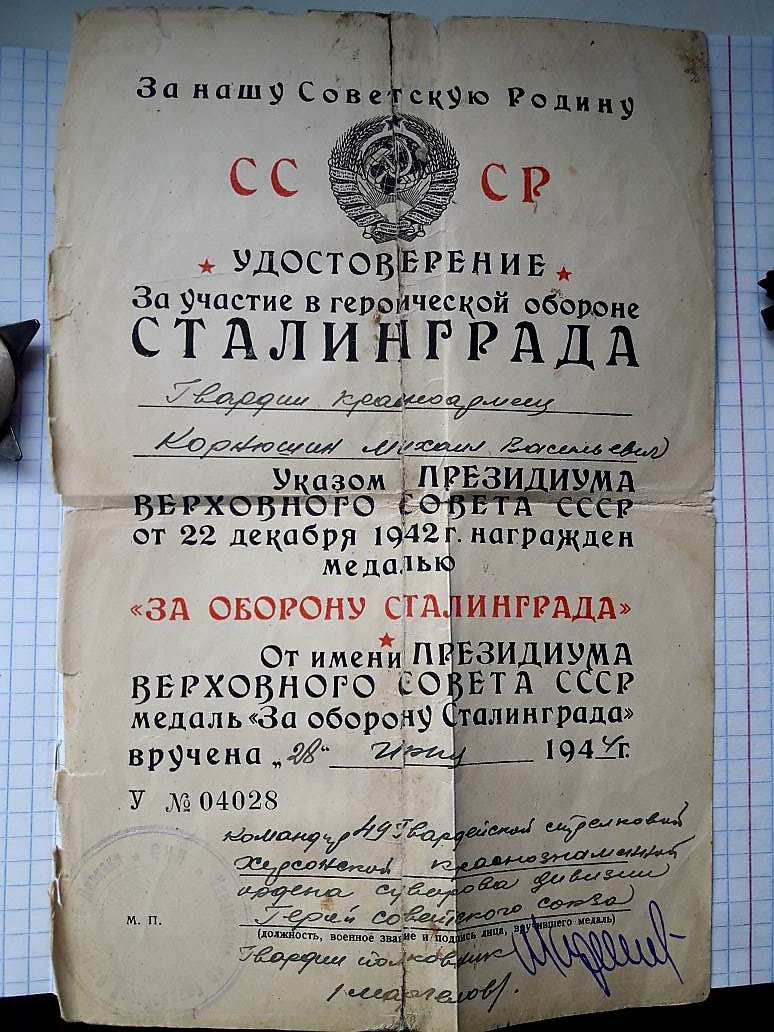 За нашу Советскую Родину
СС СР
УДОСТОВЕРЕНИЕ
За участие в героической обороне
СТАЛИНГРАДА
Гвардии красноармеец
Корнюшин Михаил Васильевич
Указом ПРЕЗИДИУМА
ВЕРХОВНОГО СОВЕТА СССР
от 22 декабря 1942 г. награжден
медалью
«ЗА ОБОРОНУ СТАЛИНГРАДА»
От имени ПРЕЗИДИУМА
ВЕРХОВНОГО СОВЕТА СССР
медаль «За оборону Сталинграда»
вручена „28“ июня 1944 г.
У № 04028
Командир 49 Гвардейской стрелковой
Херсонской краснознаменной
ордена суворова дивизии
Герой советского союза
М. П.
(должность, военное звание и подпись лица, вручившего медаль)
Гвардии полковник
/Маргелов/.